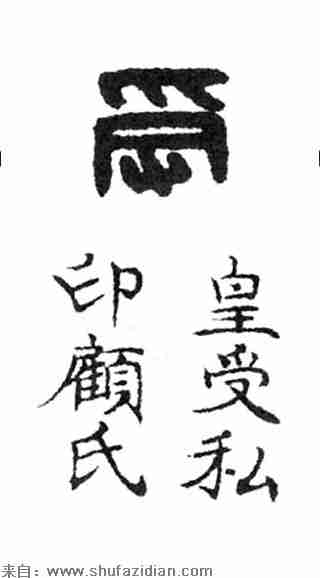 受
皇受私
印顧氏
来自：www.shufazidian.com